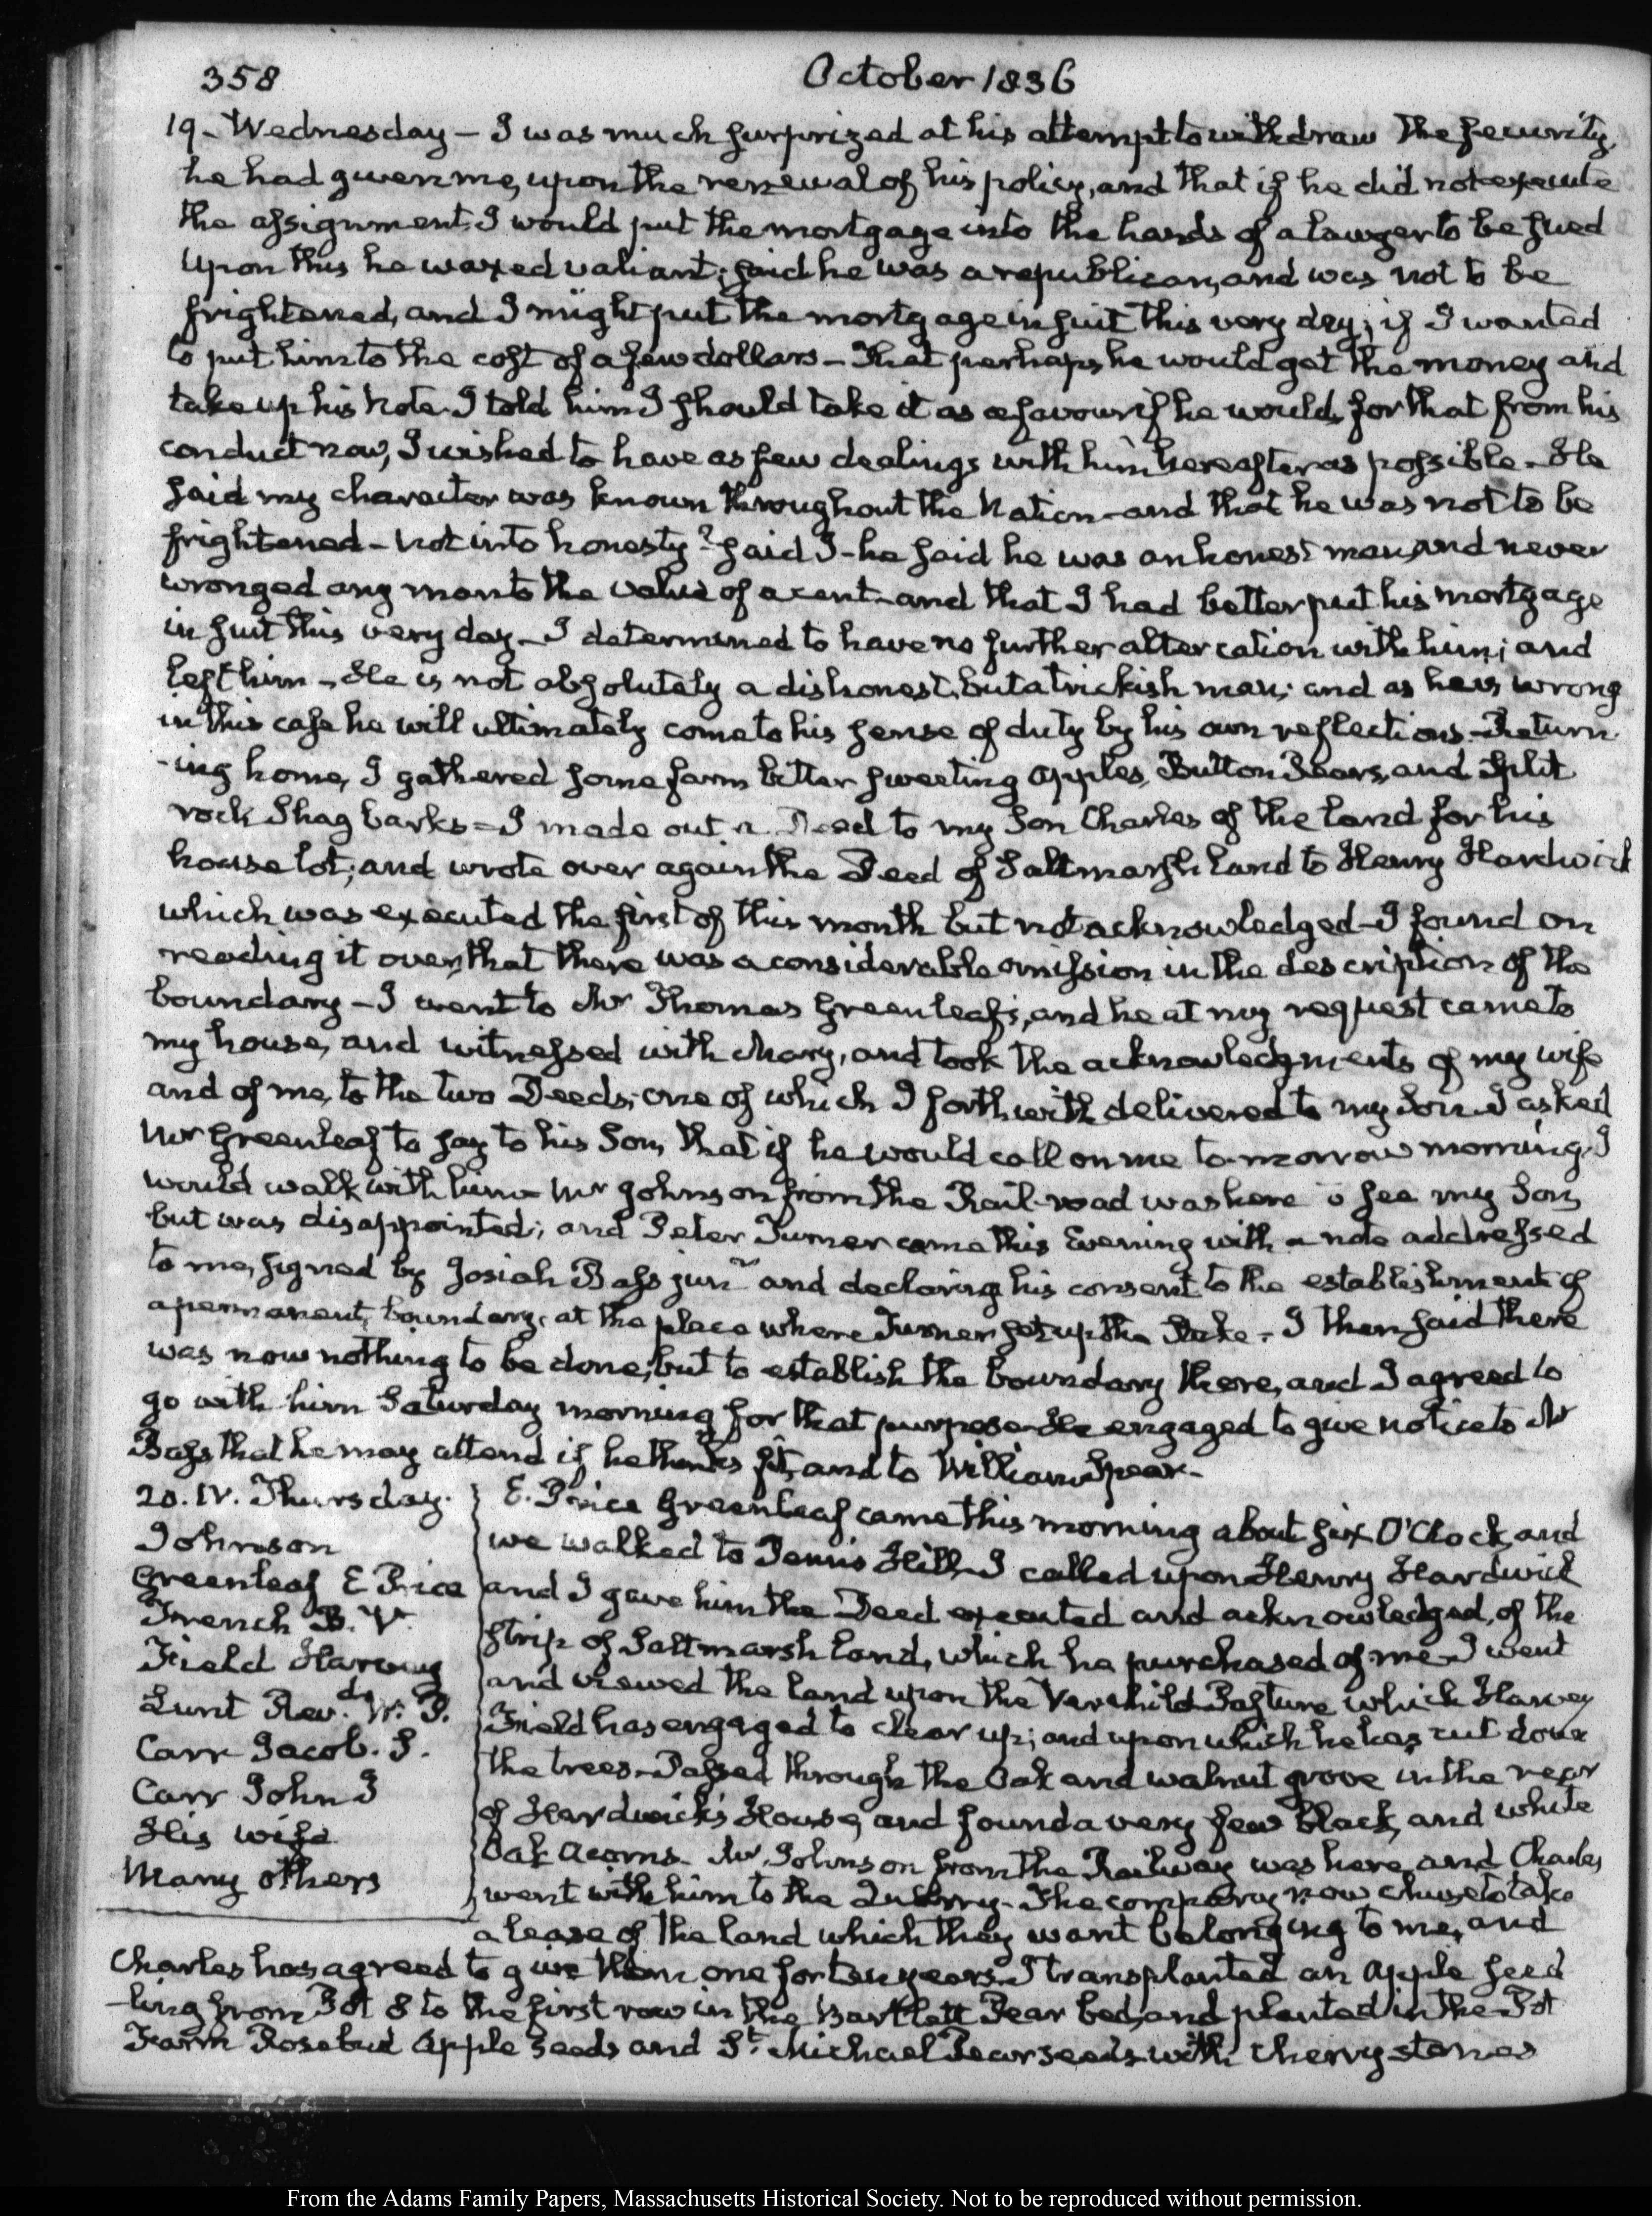 358
October 1836
19. Wednesday – I was much surprized at his attempt to withdraw the security,
he had given me, upon the renewal of his policy, and that if he did not execute
the assignment I would put the mortgage into the hands of a lawyer to be sued
Upon this he waxed valiant; said he was a republican, and was not to be
frightened, and I might put the mortgage in suit this very day; if I wanted
to put him to the cost of a few dollars – That perhaps he would get the money and
take up his Note. I told him I should take it as a favour if he would, for that from his
conduct now, I wished to have as few dealings with him hereafter as possible – He
said my character was known throughout the Nation – and that he was not to be
frightened – Not into honesty? said I – he said he was an honest man, and never
wronged any man to the value of a cent – and that I had better put his mortgage
in suit this very day – I determined to have no further altercation with him; and
left him – He is not absolutely a dishonest, but a trickish man; and as he is wrong
in this case he will ultimately come to his sense of duty by his own reflections – Return
-ing home, I gathered some farm bitter sweeting apples, Button Pears, and Split
rock Shagbarks – I made out a Deed to my Son Charles of the land for his
house lot; and wrote over again the Deed of Saltmarsh land to Henry Hardwick
which was executed the first of this month but not acknowledged – I found on
reading it over, that there was a considerable omission in the description of the
boundary – I went to Mr Thomas Greenleaf's, and he at my request came to
my house, and witnessed with Mary, and took the acknowledgments of my wife
and of me, to the two Deeds; one of which I forthwith delivered to my Son. I asked
Mr Greenleaf to say to his Son, that if he would call on me to-morrow morning, I
would walk with him – Mr Johnson from the Rail-road was here to see my Son,
but was disappointed; and Peter Turner came this Evening with a note addressed
to me, signed by Josiah Bass junr and declaring his consent to the establishment of
a permanent boundary, at the place where Turner set up the Stake – I then said there
was now nothing to be done, but to establish the boundary there, and I agreed to
go with him Saturday morning for that purpose – He engaged to give notice to Mr
Bass that he may attend if he thinks fit, and to William Spear –
20. IV. Thursday.
Johnson
Greenleaf E Price
French B. V.
Field Harvey
Lunt Revd. W. P.
Carr Jacob. S.
Carr John J
His wife
Many others
E. Price Greenleaf came this morning about six O'Clock, and
we walked to Penn's Hill – I called upon Henry Hardwick
and I gave him the Deed executed and acknowledged, of the
strip of Saltmarsh land, which he purchased of me – I went
and viewed the land upon the Verchild Pasture which Harvey
Field has engaged to clear up; and upon which he has cut down
the trees – Passed through the Oak and walnut grove in the rear
of Hardwick's House, and found a very few black, and white
Oak Acorns – Mr. Johnson from the Railway was here, and Charles
went with him to the Quarry – The company now chuse to take
a lease of the land which they want belonging to me, and
Charles has agreed to give them one for ten years. I transplanted an Apple seed
-ling from Pot 8 to the first row in the Bartlett Pear bed, and planted in the Pot
Farm Rosebud Apple seeds and St. Michael Pear seeds with cherry stones
From the Adams Family Papers, Massachusetts Historical Society. Not to be reproduced without permission.